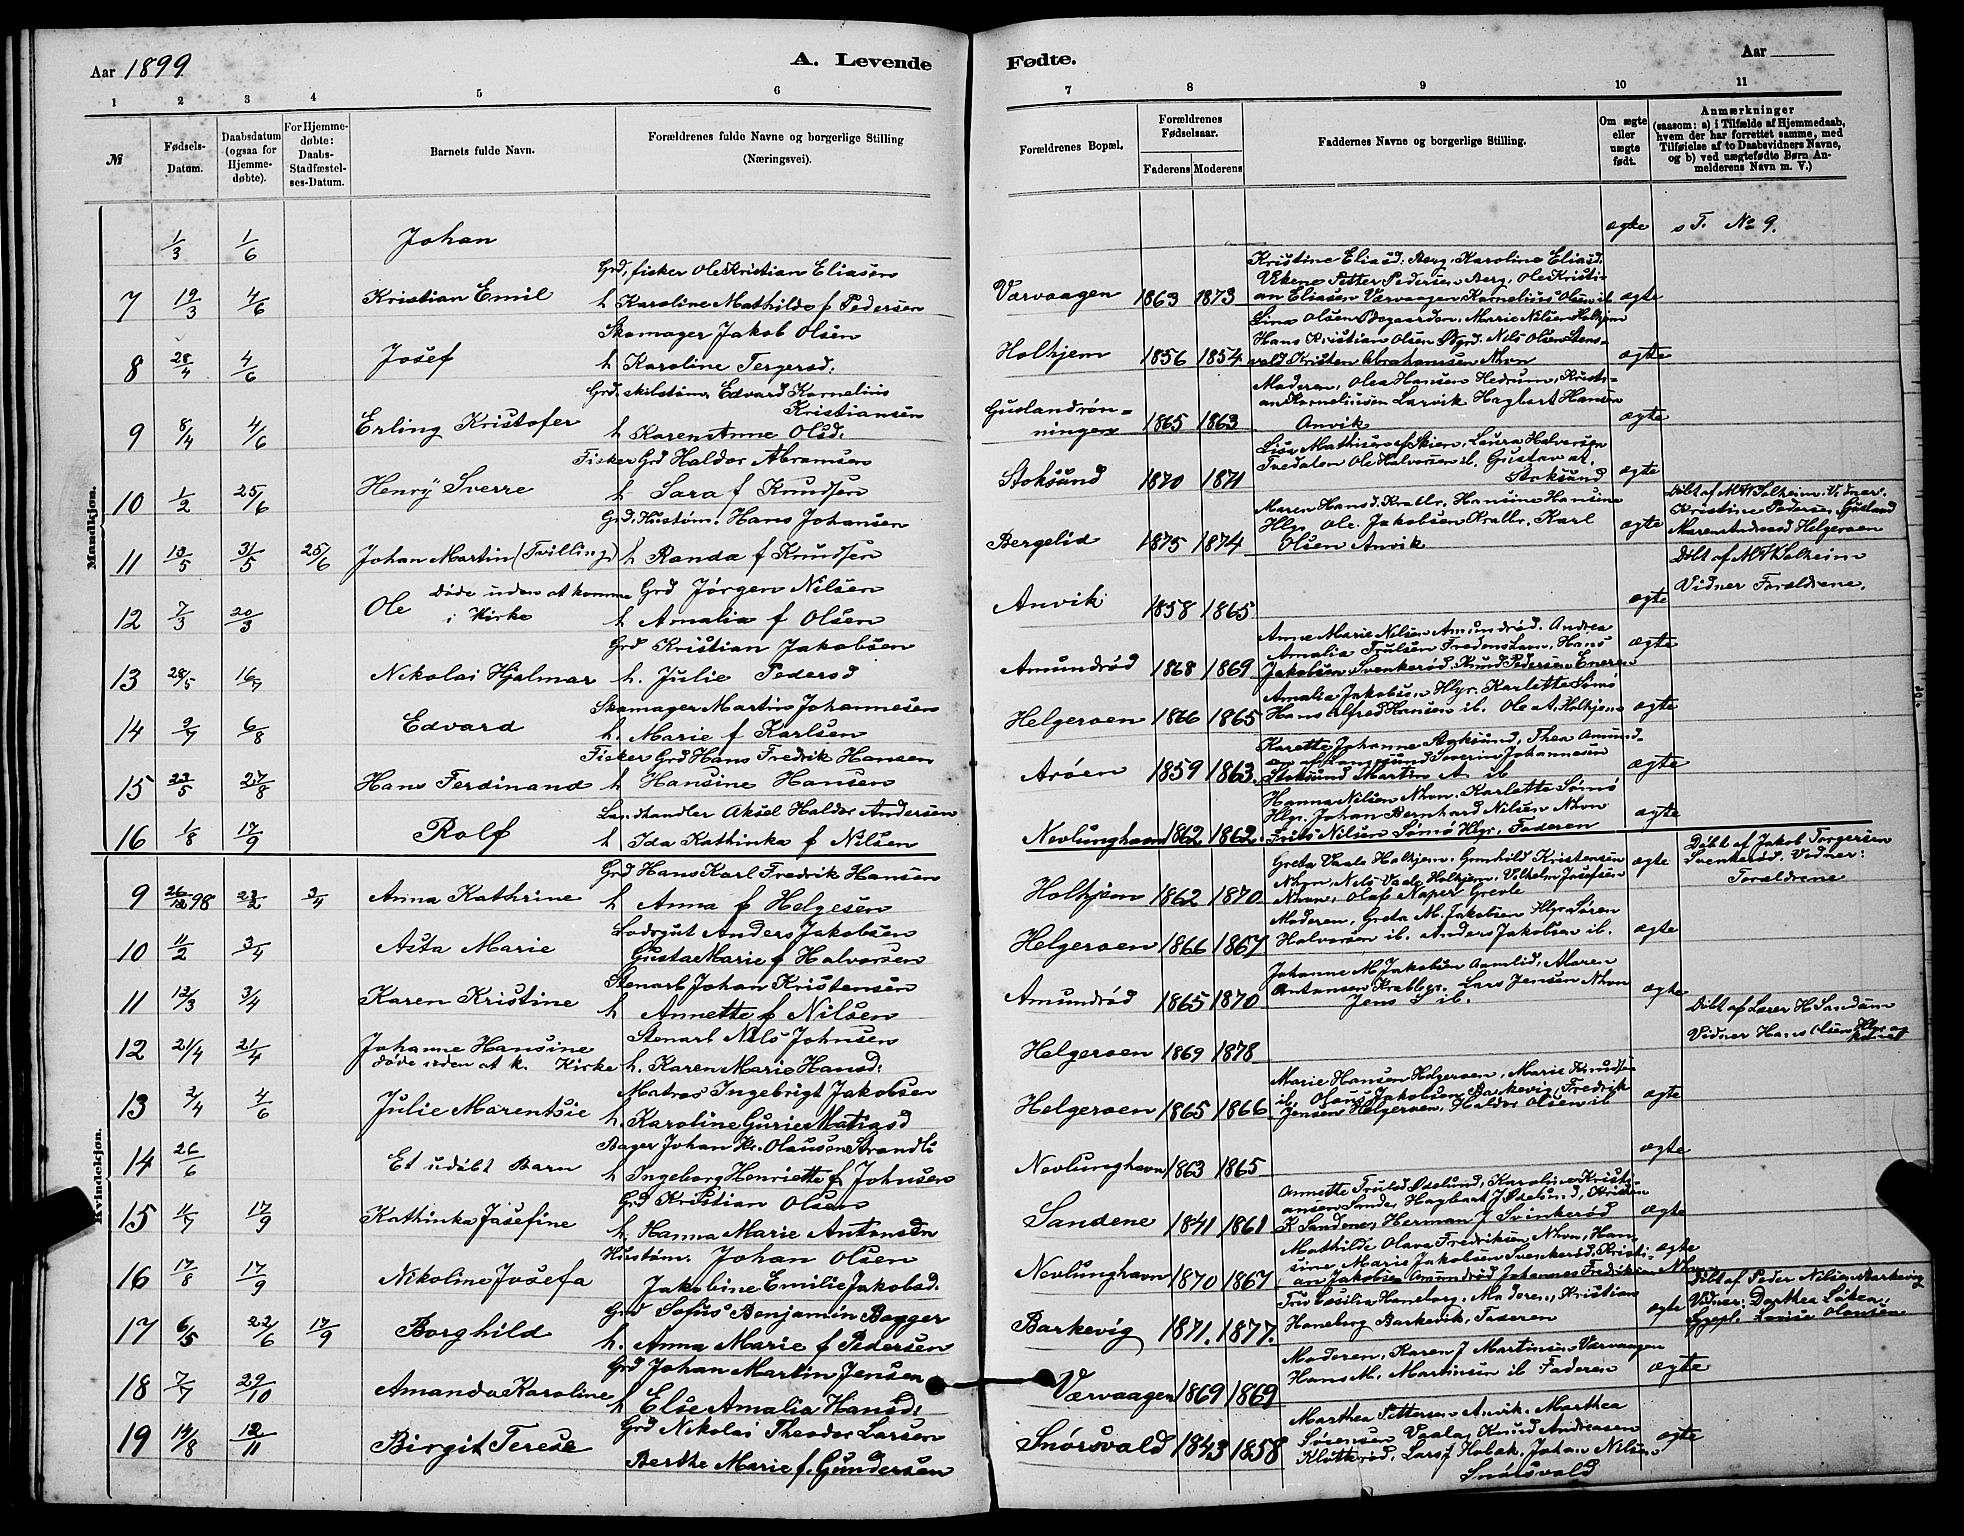 Aar 1899
A. Levende
Fødte.
Aar
1 2 3 4 5 6
7 8 9 10 11
№
Fødsels-Datum.
Daabsdatum (ogsaa for Hjemme-døbte).
For Hjemme-døbte: Daabs-Stadfæstel-ses-Datum.
Barnets fulde Navn.
Forældrenes fulde Navne og borgerlige Stilling
(Næringsvei).
Forældrenes Bopæl.
Forældrenes Fødselsaar.
Faderens Moderens
Faddernes Navne og borgerlige Stilling.
Om ægte eller uægte født.
Anmærkninger
(saasom: a) i Tilfælde af Hjemmedaab,
hvem der har forrettet samme, med
Tilføielse af to Daabsvidners Navne,
og b) ved uægtefødte Børn An-
melderens Navn m. V.)
Mandkjøn.
1/3 1/6 Johan ægte s T. No 9.
Grd, fisker Ole Kristian Eliasen
7 19/3 4/6 Kristian Emil h Karoline Mathilde f Pedersen
Værvaagen 1863 1873 ægte
Kristine Eliasd. Berg, Karoline Eliasd.
Vekene Petter Pedersen Berg, Ole Kristi-
an Eliasen Værvaagen Kornelius Olsen ib
Skomager Jakob Olsen
8 28/4 4/6 Josef h Karoline Tergersd.
Holhjem 1856 1854 ægte
Hans Kristian Olsen
Kristen Abrahamsen Nhvn
Edvard Kornelius
Kristiansen
9 8/4 4/6 Erling Kristofer h Karen Anne Olsd.
Guslandrøn-
ningen 1865 1863 ægte
Moderen, Olea Hansen Hedrum, Kristi-
an Korneliusen Larvik Hagbart Hansen
Anvik
Fisker Grd Haldor Abramsen
10 1/2 25/6 Henry Sverre h Sara f Knudsen
Stoksund 1870 1871 ægte
Laura Halvorsen
Tvedalen Ole Halvorsen ib. Gustav at.
Stoksund
Grd. Hustøm. Hans Johansen
11 31/5 25/6 Johan Martin (Tvilling) h Randa f Knudsen
Bergelid 1875 1874 ægte
Maren Hansd. Krablr, Hansine Hansine
Hlgr, Ole Jakobsen Krablr, Karl
Olsen Anvik
Døbt af M W Solheim. Vidner.
Kristine Pedersen Gusland
Helgeroen
Grd Jørgen Nilsen
12 7/3 20/3 Ole Døde uden at komme
i Kirke h Amalia f Olsen
Anvik 1858 1865 ægte
Døbt af M W Solheim
Vidner Forældrene.
Grd Kristian Jakobsen
13 28/5 16/7 Nikolai Hjalmar h. Julie Pedersd
Amundrød 1868 1869 ægte
Anne Marie Nilsen Amundrød. Andrea
Amalia Trulsen Fredenshavn, Hans
Jakobsen Svenkerød. Knud Pedersen Eneren
Skomager Martin Johannesen
14 2/7 6/8 Edvard h. Marie f Karlsen
Helgeroen 1866 1865 ægte
Amalia Jakobsen Hlgr. Karlette Sømø
Hans Alfred Hansen ib. Ole A. Holhjem
Fisker Grd Hans Fredrik Hansen
15 23/5 27/8 Hans Ferdinand h Hansine Hansen
Arøen 1859 1863. ægte
Stoksund Martin A ib
Landhandler Aksel Haldor Andersen
16 1/8 17/9 Rolf h Ida Kathinka f Nilsen
Nevlunghavn 1862 1862. ægte
Hanna Nilsen Nhvn. Karlette Sømø
Hlgr. Johan Bernhard Nilsen Nhvn
Frits Nilsen Sømø Hlgr, Faderen
Kvindekjøn.
Grd Hans Karl Fredrik Hansen
9 26/12 98 23/2 3/4 Anna Kathrine h Anna f Helgesen
Holhjem 1862 1870 ægte
Greta Vaale Holhjem. Gunhild Kristensen
Nhvn, Nils Vaale Holhjem. Vilhelm Josefsen
Nhvn, Olaf Naper Grevle
Døbt af Jakob Torgersen
Svenkerød. Vidner:
Forældrene
Lodsgut Anders Jakobsen
10 11/2 3/4 Asta Marie Gusta Marie f Halvorsen
Helgeroen 1866 1867 ægte
Moderen, Greta M. Jakobsen Hlgr Søren
Halvorsen ib. Anders Jakobsen ib.
Stenarb Johan Kristensen
11 12/3 3/4 Karen Kristine h Annette f Nilsen
Amundrød 1865 1870 ægte
Johanne M Jakobsen Aamlid, Maren
Antonsen Krablgr. Lars Jensen Nhvn
Jens L ib.
Stenarb Nils Johnsen
12 21/4 21/4 Johanne Hansine
døde uden at k. Kirke h. Karen Marie Hansd.
Helgeroen 1869 1878
Døbt af Lærer H Sandum
Vidner Hans Olsen Hlgr og
Matros Ingebrigt Jakobsen
13 2/4 4/6 Julie Marentsie h. Karoline Gurie Matiasd
Helgeroen 1865 1866 ægte
Marie Hansen Helgeroen, Marie Knudsen
ib, Olaus Jakobsen Barkevig, Fredrik
Jensen Helgeroen, Haldor Olsen ib
Bager Johan Kr. Olausen Strandli
14 26/6 Et udøbt Barn h Ingeborg Henriette f Johnsen
Nevlunghavn 1863 1865 ægte
Grd Kristian Olsen
15 11/7 17/9 Kathinka Josefine h. Hanna Marie Antonsen
Sandene 1841 1861 ægte
Annette Trulsd Ødelund, Karoline Kristi-
ansen Sande, Hagbart J Ødelund, Kristen
K Sandene, Herman J Svinkerød
Hustøm. Johan Olsen
16 17/8 17/9 Nikoline Josefa Jakobine Emilie Jakobsd.
Nevlunghavn 1870 1867 ægte
Mathilde Olava Fredriksen Nhvn, Han-
sine Marie Jakobsen Svenkerød. Kristi-
an Jakobsen Amundrød Johannes Fredriksen Nhvn
Grd Sofus Benjamin Bagger
17 6/5 22/6 17/9 Borghild h. Anna Marie f Pedersen
Barkevig 1871. 1877. ægte
Fru Cæsilia Haneborg, Moderen, Kristian
Haneborg Barkevik, Faderen
Døbt af Peder Nilsen Barkevig
Vidner: Dorthea Løken,
Lovise Olausen
Grd Johan Martin Jensen
18 7/7 29/10 Amanda Karoline h Else Amalia Hansd.
Værvaagen 1869 1869 ægte
Moderen, Karen J Martinsen Værvaagen
Hans M. Martinsen ib Faderen
Grd Nikolai Theodor Larsen
19 14/8 12/11 Birgit Terese Berthe Marie f. Gundersen
Snørsvald 1843 1858 ægte
Marthea Pettersen Anvik. Marthea
Sørensen Vaale, Knud Andreasen
Klotterød, Lars J Hobæk, Johan Nilsen
Snørsvald